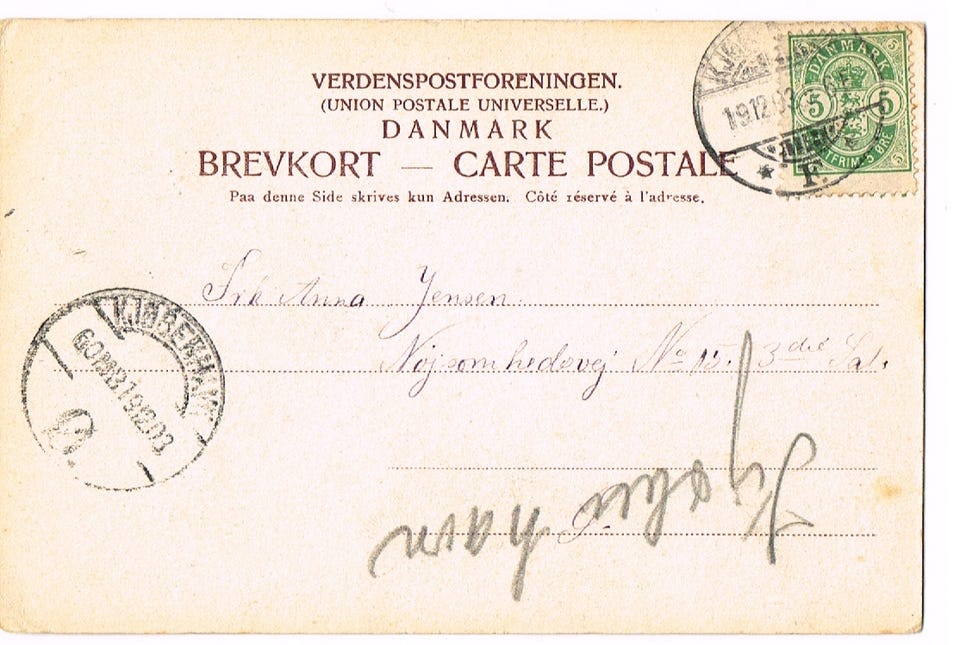 VERDENSPOSTFORENINGEN.
(UNION POSTALE UNIVERSELLE.)
DANMARK
BREVKORT — CARTE POSTALE
Paa denne Side skrives kun Adressen. Côté réservé à l'adresse.
DANMARK
5 5
19.12.03
F.
Frk Anna Jensen.
Nøjsomhedsvej No 15. 3die Sal.
KJØBENHAVN
6.OMB.1 19.12.03
Ø.
Kjøben havn